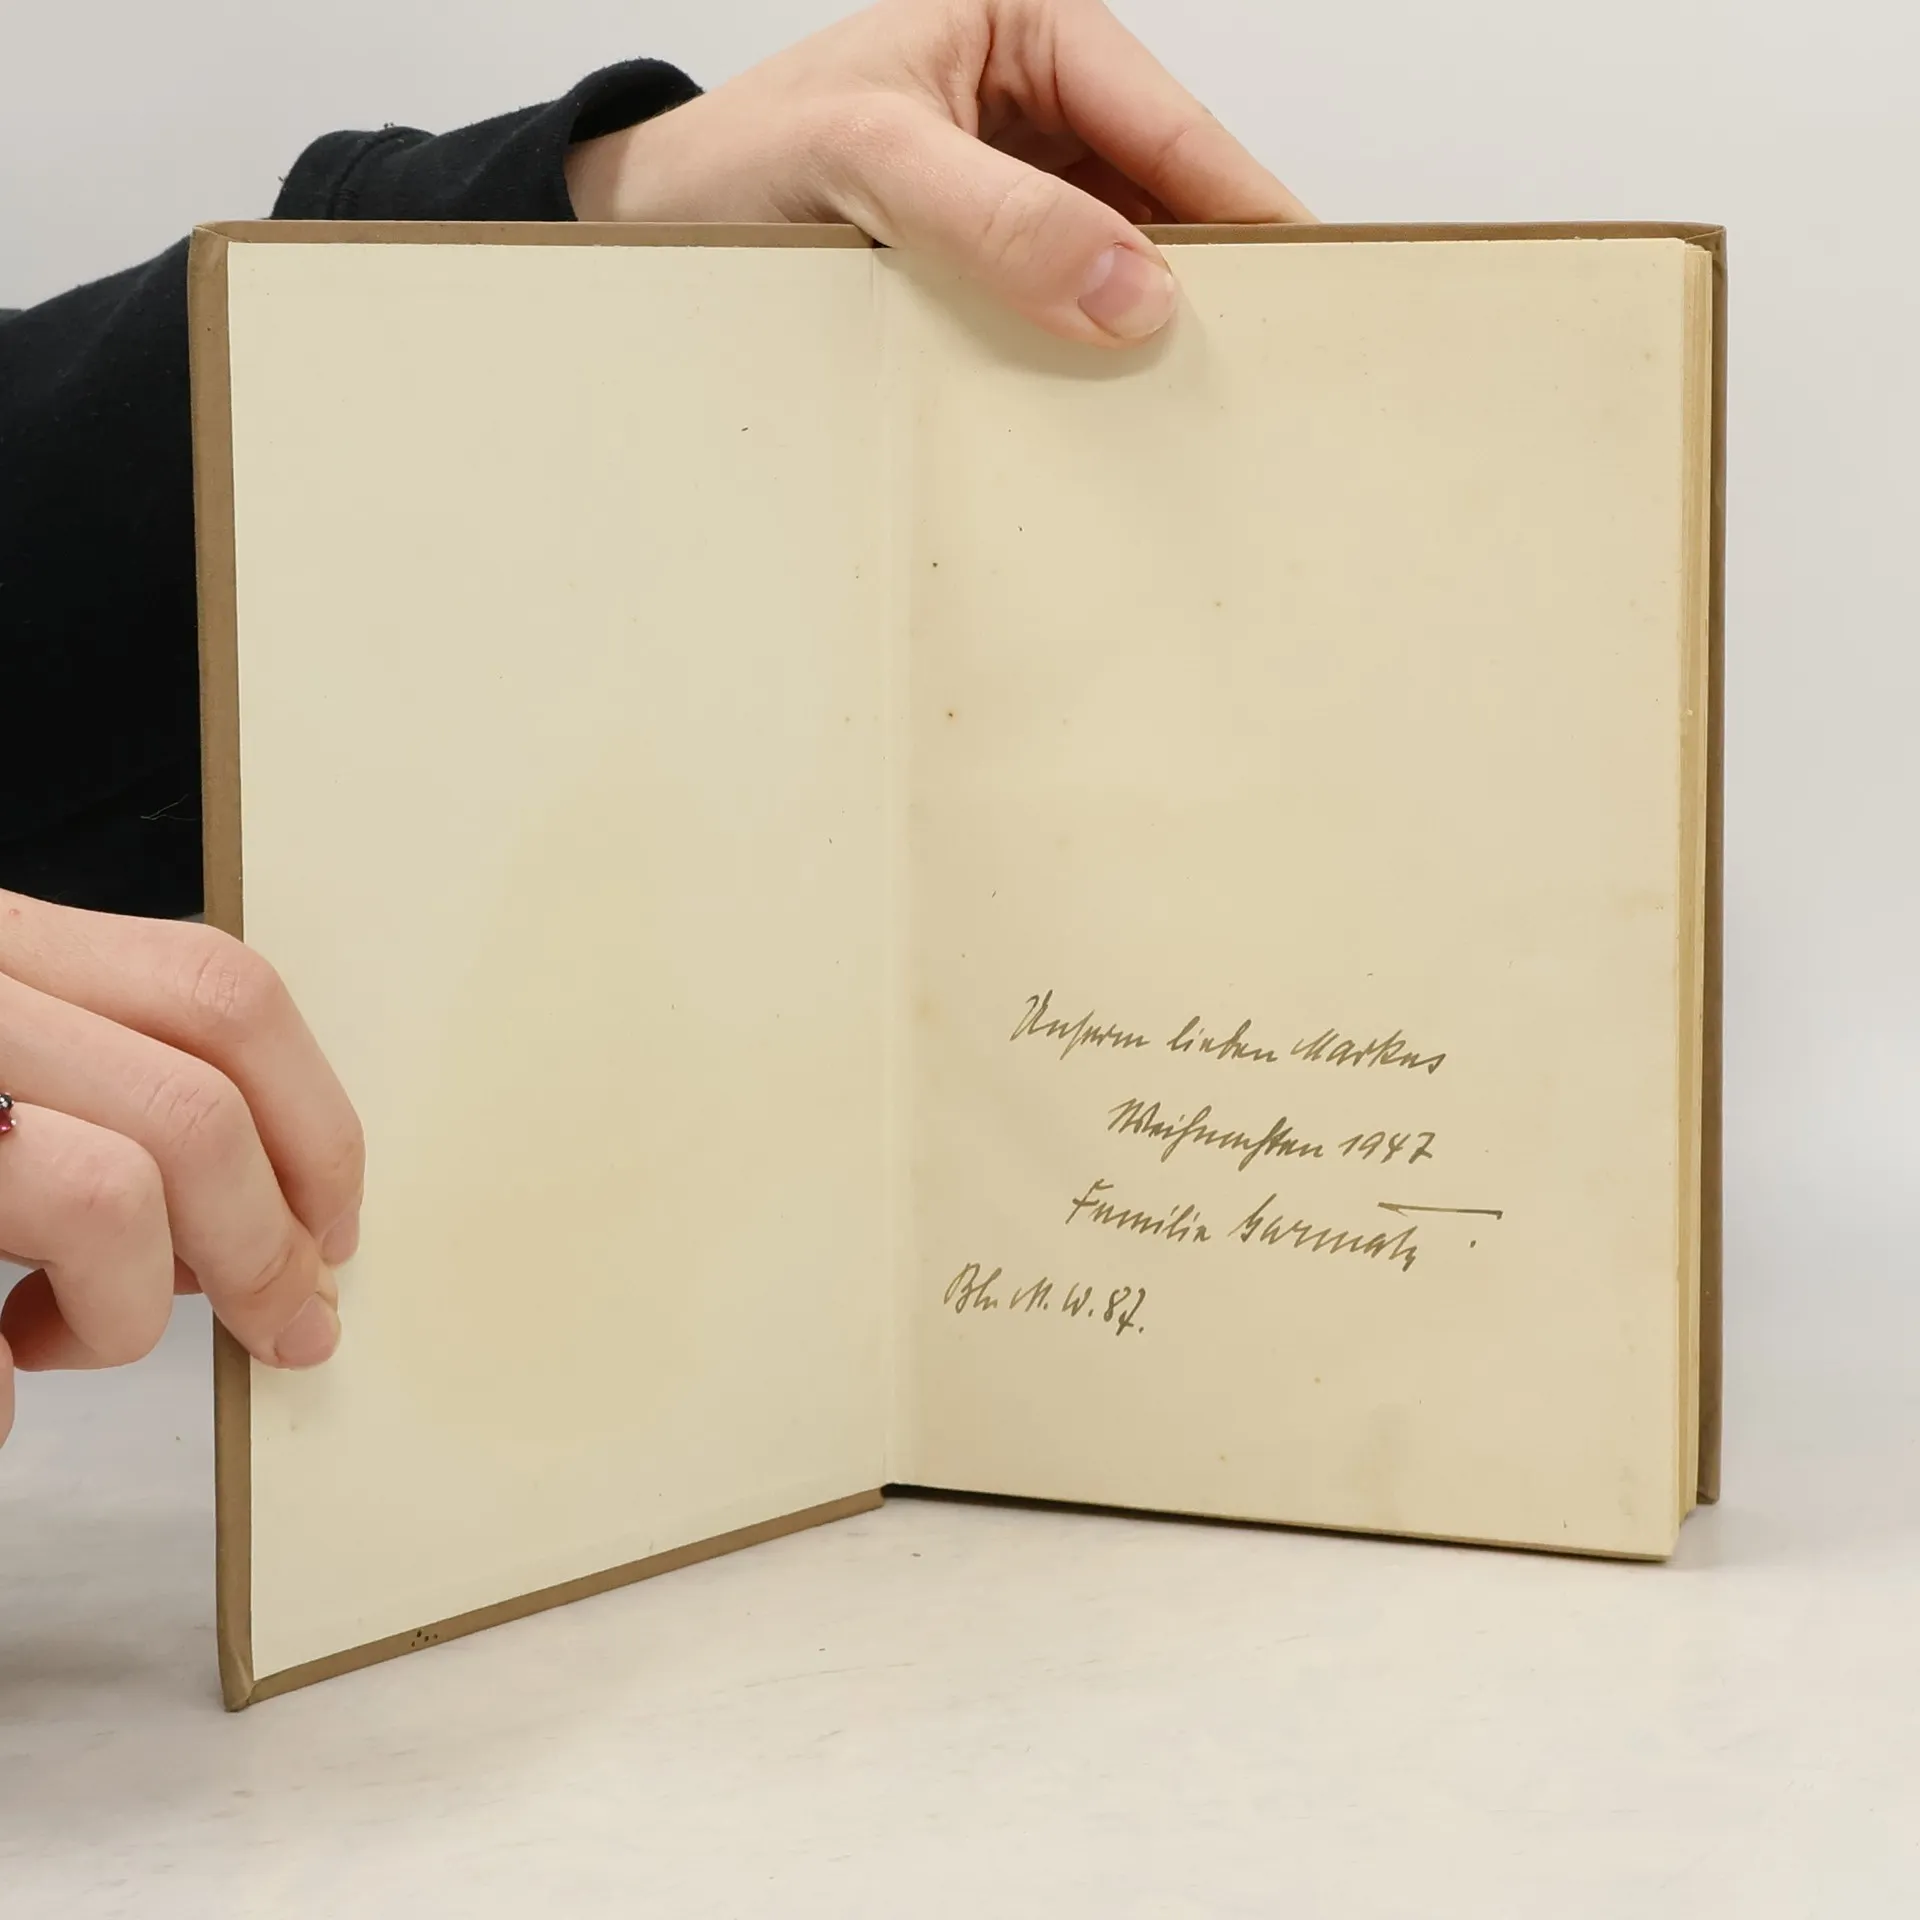 Unserm lieben Markus
Weihnachten 1947
Familie Garmatz.
Bln. N. W. 87.